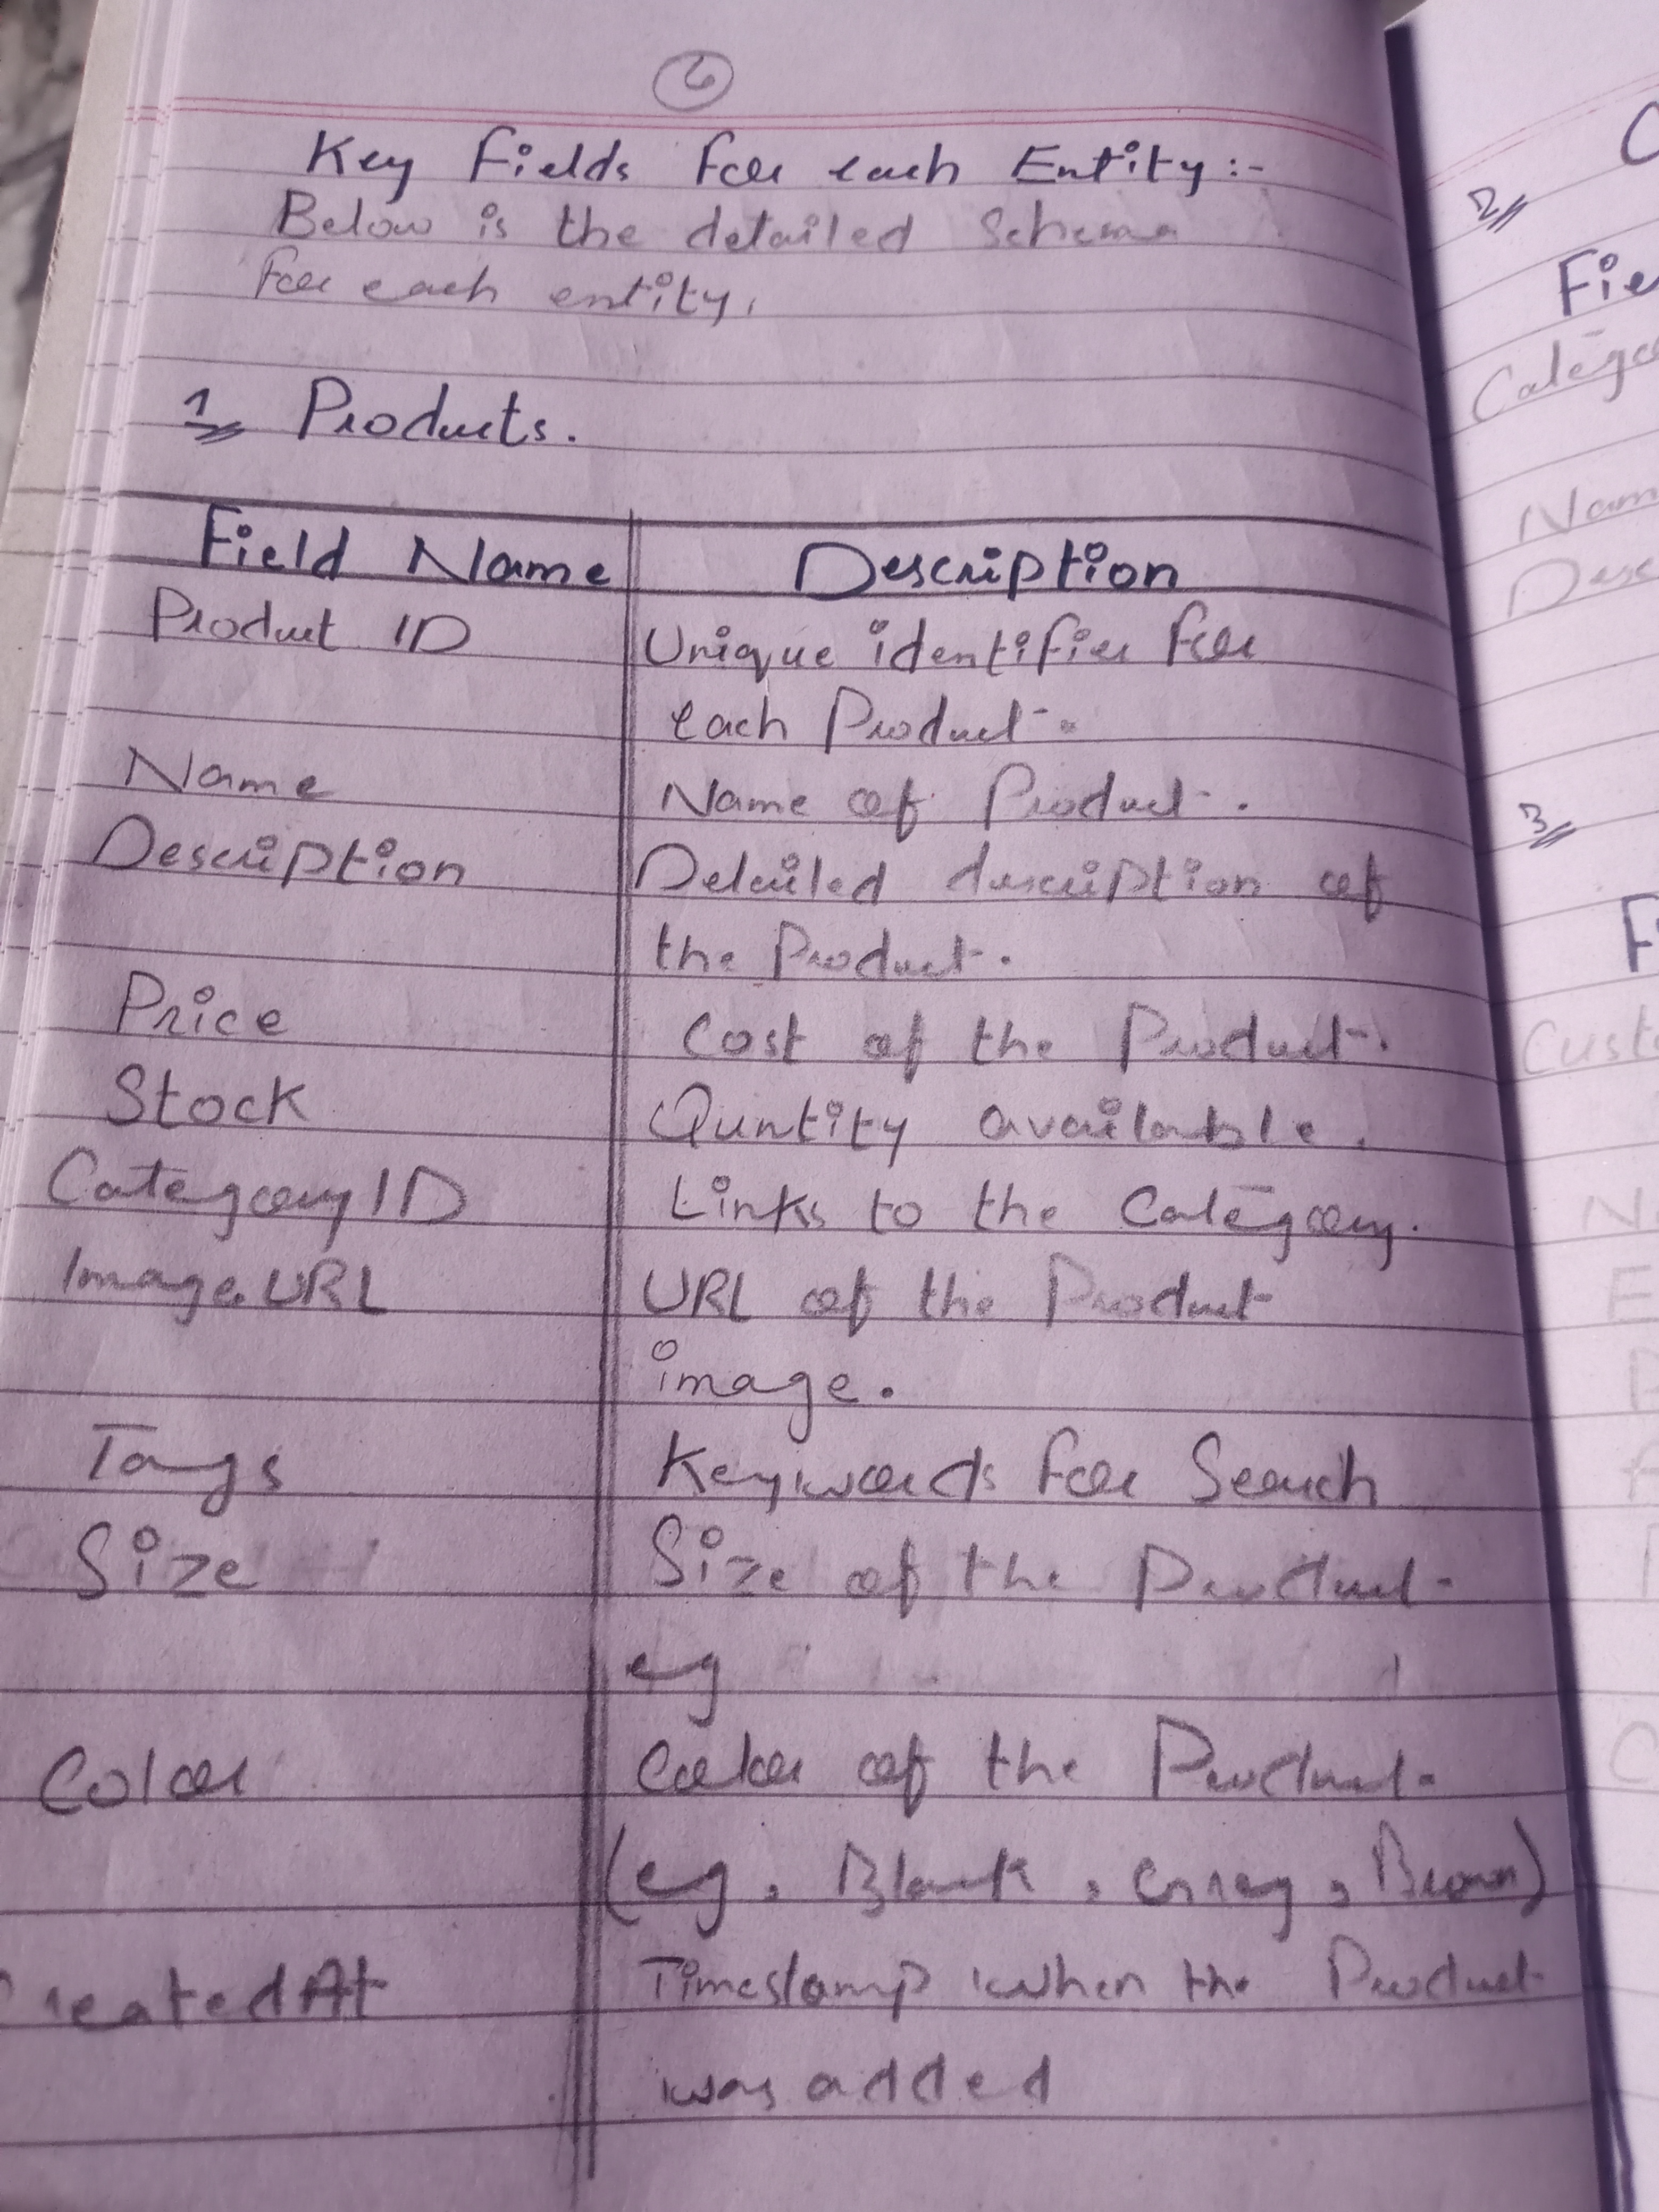 6
Key Fields For each Entity :-
Below is the detailed Schema
For each entity.
1 Products.
Field Name Description
Product ID Unique identifier For
each Product.
Name Name of Product.
Description Detailed description of
the Product.
Price Cost of the Product.
Stock Quntity available.
CategoryID Links to the Category.
Image.URL URL of the Product
image.
Tags Keywords For Search
Size Size of the Product.
eg
Color Color of the Product.
(eg, Black, Grey, Brown)
CreatedAt Timestamp when the Product
was added
2
Fie
Catego
Nam
Desc
3
F
Custo
N
E